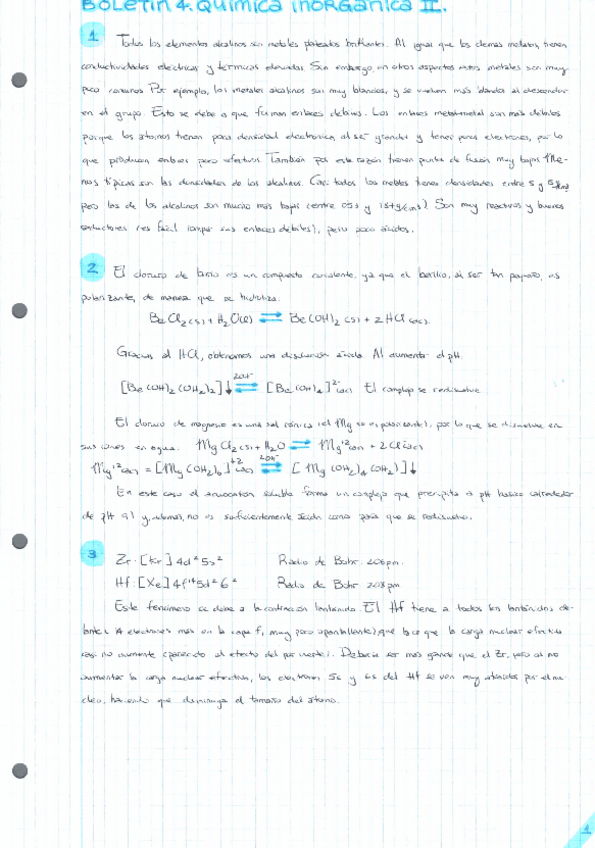 BOLETÍN 4. QUÍMICA INORGÁNICA II.
1 Todos los elementos alcalinos son metales plateados brillantes. Al igual que los demás metales, tienen
conductividades eléctricas y térmicas elevadas. Sin embargo, en otros aspectos estos metales son muy
poco comunes. Por ejemplo, los metales alcalinos son muy blandos, y se vuelven más blandos al descender
en el grupo. Esto se debe a que forman enlaces débiles. Los enlaces metal-metal son más débiles
porque los átomos tienen poca densidad electrónica al ser grandes y tener pocos electrones, por lo
que producen enlaces poco efectivos. También por esta razón tienen puntos de fusión muy bajos. Me-
nos típicas son las densidades de los alcalinos. Casi todos los metales tienen densidades entre 5 y
pero las de los alcalinos son mucho más bajas (entre 0'5 y g/cm3). Son muy reactivos y buenos
reductores (es fácil romper sus enlaces débiles), pero poco ácidos.
2 El cloruro de berilio es un compuesto covalente, ya que el berilio, al ser tan pequeño, es
polarizante, de manera que se hidroliza.
BeCl2(s) + H2O(l) ⇌ Be(OH)2(s) + 2HCl(ac).
Gracias al HCl, obtenemos una disolución ácida. Al aumentar el pH
[Be(OH)2(OH2)2]↓ ⇌ 2OH- [Be(OH)4]2-(ac) El complejo se redisuelve.
El cloruro de magnesio es una sal iónica (el Mg no es polarizante), por lo que se disuelve en
sus iones en agua. MgCl2(s) + H2O ⇌ Mg+2(ac) + 2Cl-(ac)
Mg+2(ac) = [Mg(OH2)6]+2(ac) ⇌ 2OH- [Mg(OH2)4(OH)2]↓
En este caso el acuocatión soluble forma un complejo que precipita a pH básico (alrededor
de pH 9) y, además, no es suficientemente ácido como para que se redisuelva.
3 Zr: [Kr] 4d2 5s2 Radio de Bohr: 206pm.
Hf: [Xe] 4f14 5d2 6 2 Radio de Bohr: 208pm
Este fenómeno se debe a la contracción lantánida. El Hf tiene a todos los lantánidos de-
lante (14 electrones más en la capa f, muy poco apantallante), que hace que la carga nuclear efectiva
no aumente (parecido al efecto del par inerte). Debería ser más grande que el Zr, pero al no
aumentar la carga nuclear efectiva, los electrones 5s y 6s del Hf se ven muy atraídos por el nú-
cleo, haciendo que disminuya el tamaño del átomo.
1